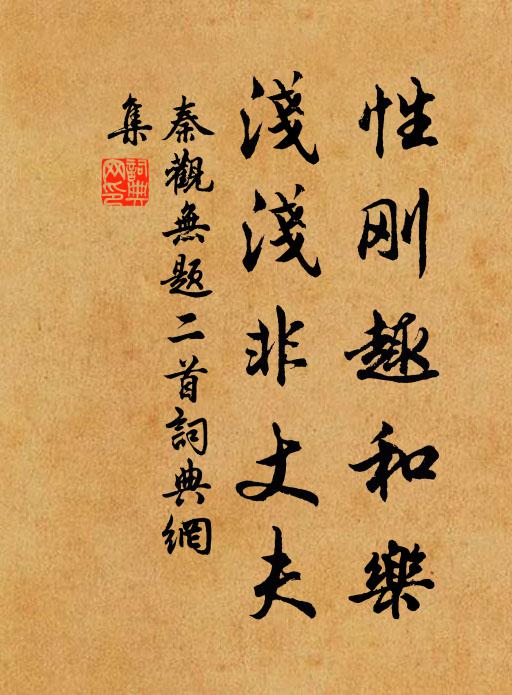 性刚趣和樂
淺淺非丈夫
秦觀無题二首詞典網
集
詞典
网印